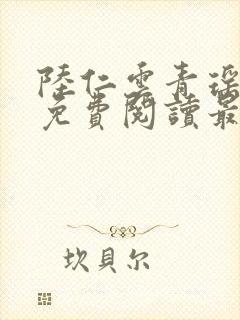 陸仁雲青瑶
免費閱讀最
坎貝尔